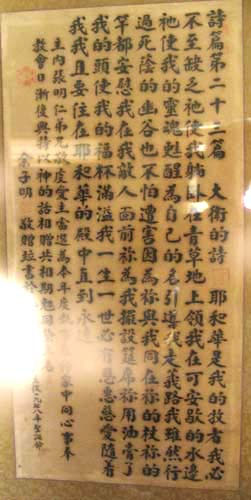 詩篇第二十三篇 大衛的詩 耶和華是我的牧者我必
不至缺乏祂使我躺臥在青草地上領我在可安歇的水邊
祂使我的靈魂甦醒為自己的名引導我走義路我雖然行
過死蔭的幽谷也不怕遭害因為祢與我同在祢的杖祢的
竿都安慰我在我敵人面前祢為我擺設筵席祢用油膏了
我的頭使我的福杯滿溢我一生一世必有恩惠慈愛隨著
我我且要住在耶和華的殿中直到永遠
主內張明仁弟兄敬虔愛主當選為本年度 家中同心事奉
教會日漸復興特以神的話相贈共相期勉
余子明 敬贈